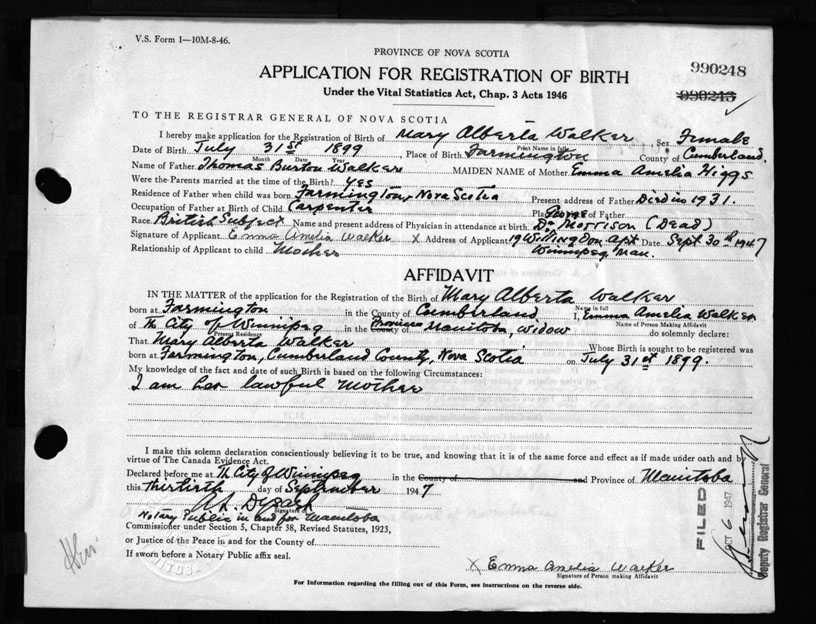 V.S. Form 1—10M-8-46.
PROVINCE OF NOVA SCOTIA
990248
APPLICATION FOR REGISTRATION OF BIRTH
990243
Under the Vital Statistics Act, Chap. 3 Acts 1946
TO THE REGISTRAR GENERAL OF NOVA SCOTIA
I hereby make application for the Registration of Birth of Mary Alberta Walker, Sex Female
Print Name in full
Date of Birth July 31st 1899, Place of Birth Farmington County of Cumberland.
Month Date Year
Name of Father Thomas Burton Walker MAIDEN NAME of Mother Emma Amelia Higgs
Were the Parents married at the time of the Birth? Yes
Residence of Father when child was born Farmington, Nova Scotia Present address of Father Died in 1931.
Occupation of Father at Birth of Child Carpenter Place of Father
Race British Subject Name and present address of Physician in attendance at birth Dr Morrison (Dead)
Signature of Applicant Emma Amelia Walker X Address of Applicant Apt Date Sept. 30th 1947
Relationship of Applicant to child Mother Winnipeg Man.
AFFIDAVIT
IN THE MATTER of the application for the Registration of the Birth of Mary Alberta Walker
Name in full
born at Farmington in the County of Cumberland I, Emma Amelia Walker
Name of Person Making Affidavit
of The City of Winnipeg in the County of Province Manitoba, widow do solemnly declare:
Present Residence
That Mary Alberta Walker Whose Birth is sought to be registered was
born at Farmington, Cumberland County, Nova Scotia on July 31st 1899.
My knowledge of the fact and date of such Birth is based on the following Circumstances:
I am her lawful Mother
I make this solemn declaration conscientiously believing it to be true, and knowing that it is of the same force and effect as if made under oath and by
virtue of The Canada Evidence Act.
Declared before me at The City of Winnipeg in the County of and Province of Manitoba
this Thirtieth day of September 1947
Signature of
Notary Public in and for Manitoba
Commissioner under Section 5, Chapter 38, Revised Statutes, 1923,
or Justice of the Peace in and for the County of
If sworn before a Notary Public affix seal.
X Emma Amelia Walker
Signature of Person making Affidavit
For Information regarding the filling out of this Form, see instructions on the reverse side.
FILED
OCT 6 1947
Deputy Registrar General